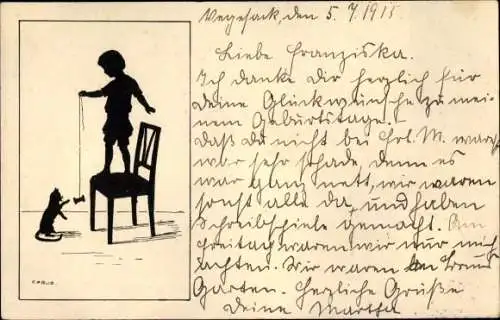 Vegesack, den 5. 7. 1915
Liebe Franziska.
Ich danke Dir herzlich für
deine Glückwünsche zu mei-
nem Geburtstage.
Daß du nicht bei Frl. M. warst
war sehr schade, denn es
war ganz nett, wir waren
sonst alle da, und haben
Schreibspiele gemacht. Am
Freitag waren wir nur
achten. Wir waren
Garten. Herzliche Grüße
Deine Martha